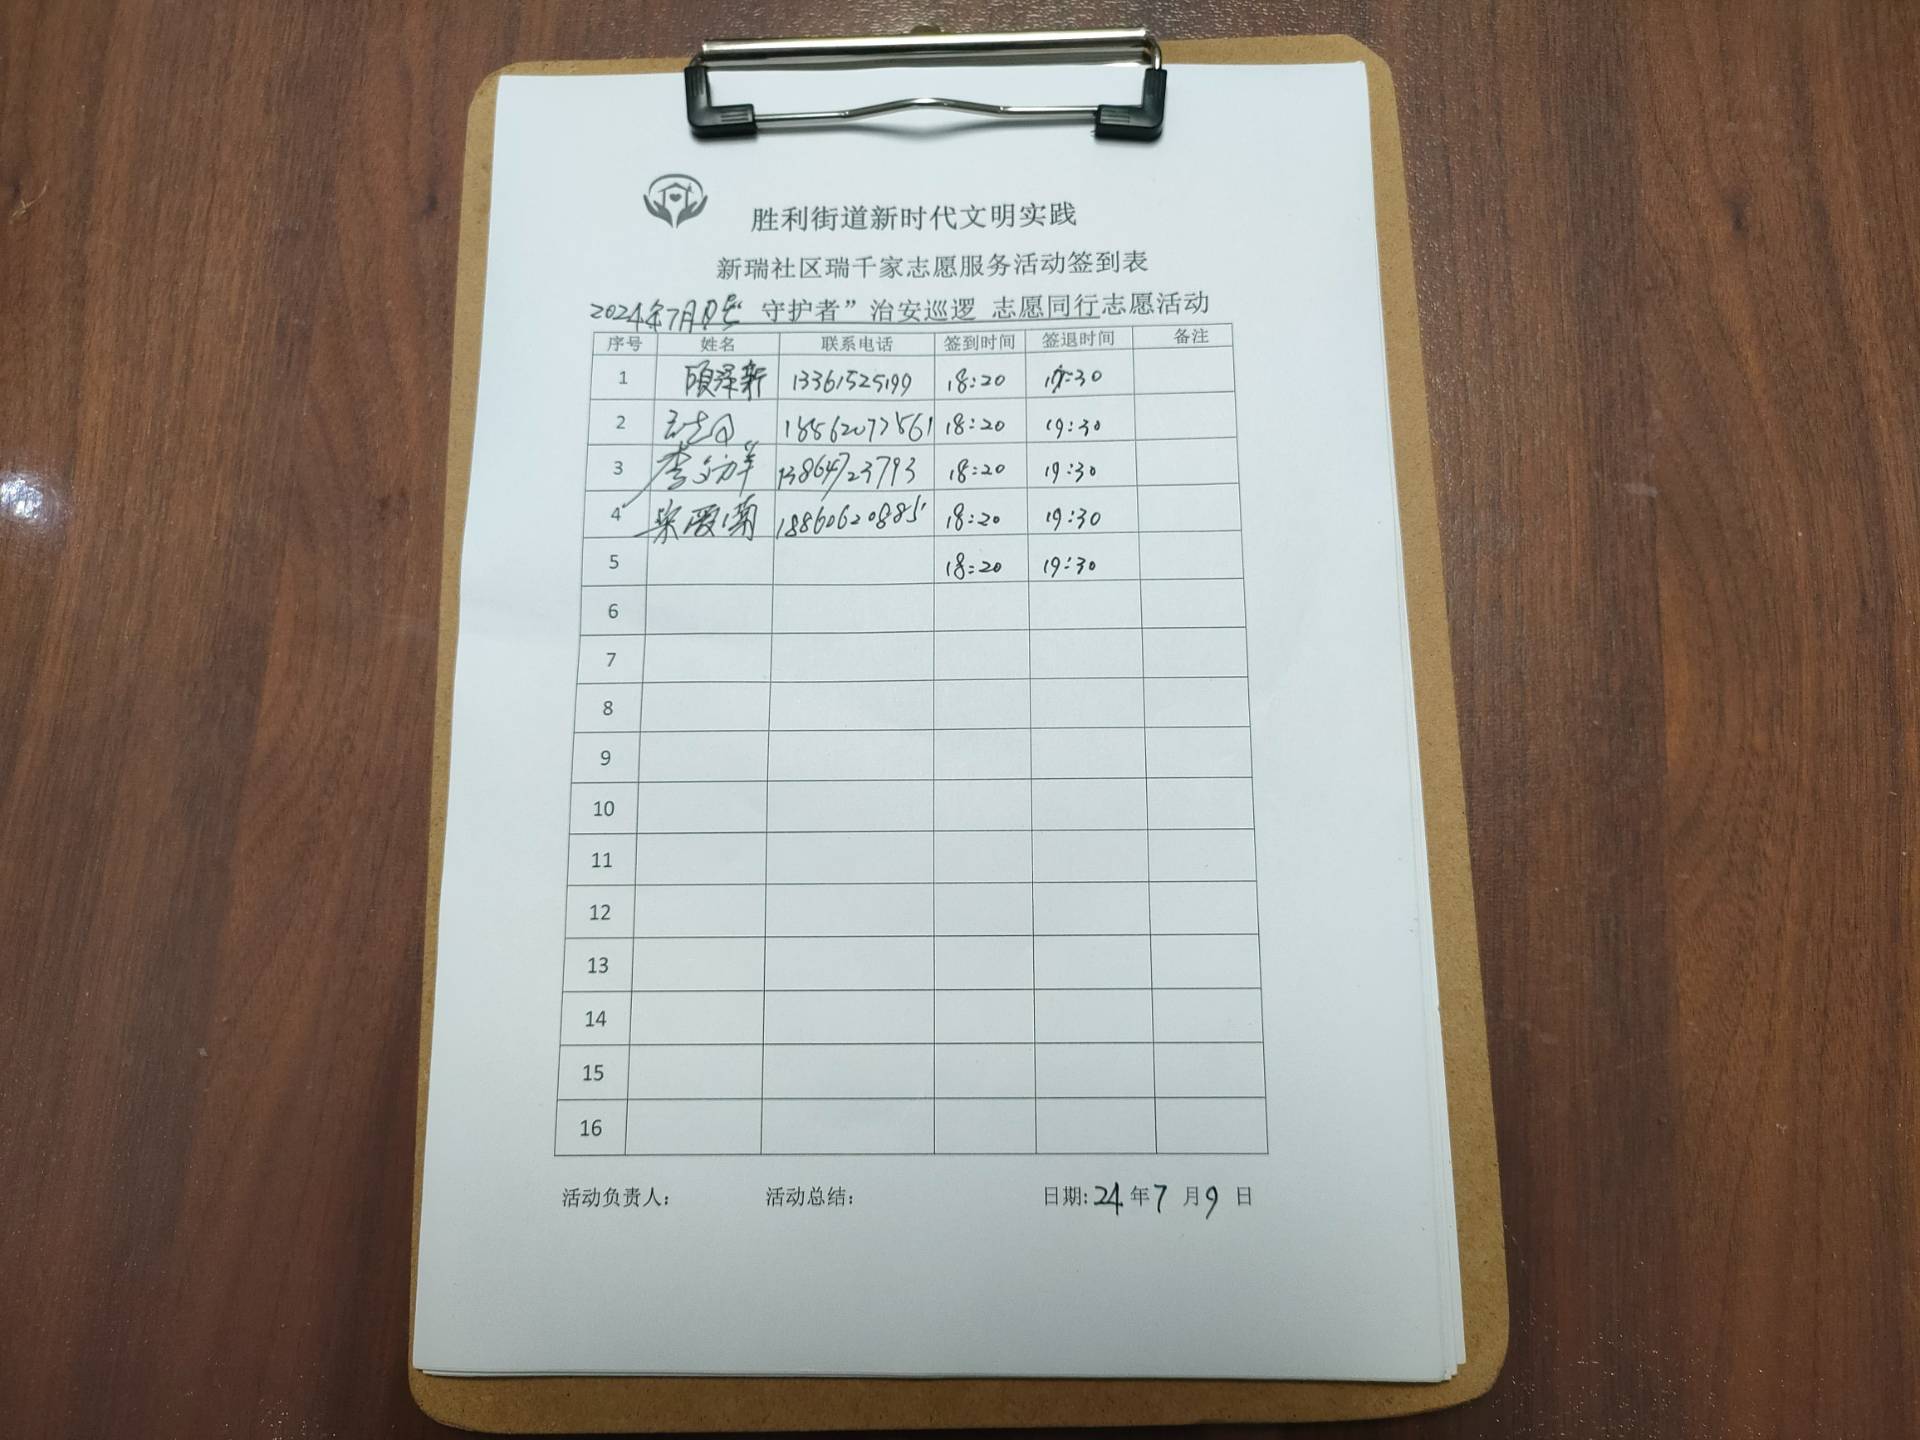 胜利街道新时代文明实践
新瑞社区瑞千家志愿服务活动签到表
2024年7月 “守护者”治安巡逻 志愿同行志愿活动
序号 姓名 联系电话 签到时间 签退时间 备注
1 顾泽新 13361525199 18:20 19:30
2 18:20 19:30
3 13864723793 18:20 19:30
4 18860620885 18:20 19:30
5 18:20 19:30
6
7
8
9
10
11
12
13
14
15
16
活动负责人: 活动总结: 日期:24年7月9日